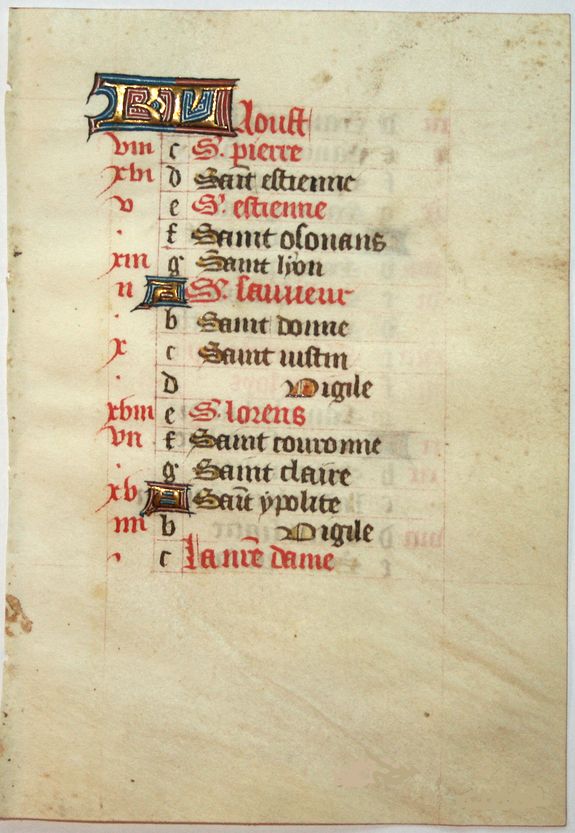 KL Aoust
viii c S. pierre
xvi d Saīt estienne
v e S. estienne
. f Saint osouans
xiii g Saint lyon
ii A S. sauueur
. b Saint donne
x c Saint iustin
. d Vigile
xviii e S. lorens
vii f Saint couronne
. g Saint claire
xv A Saīt ypolite
iiii b Vigile
. c La nr̄e dame